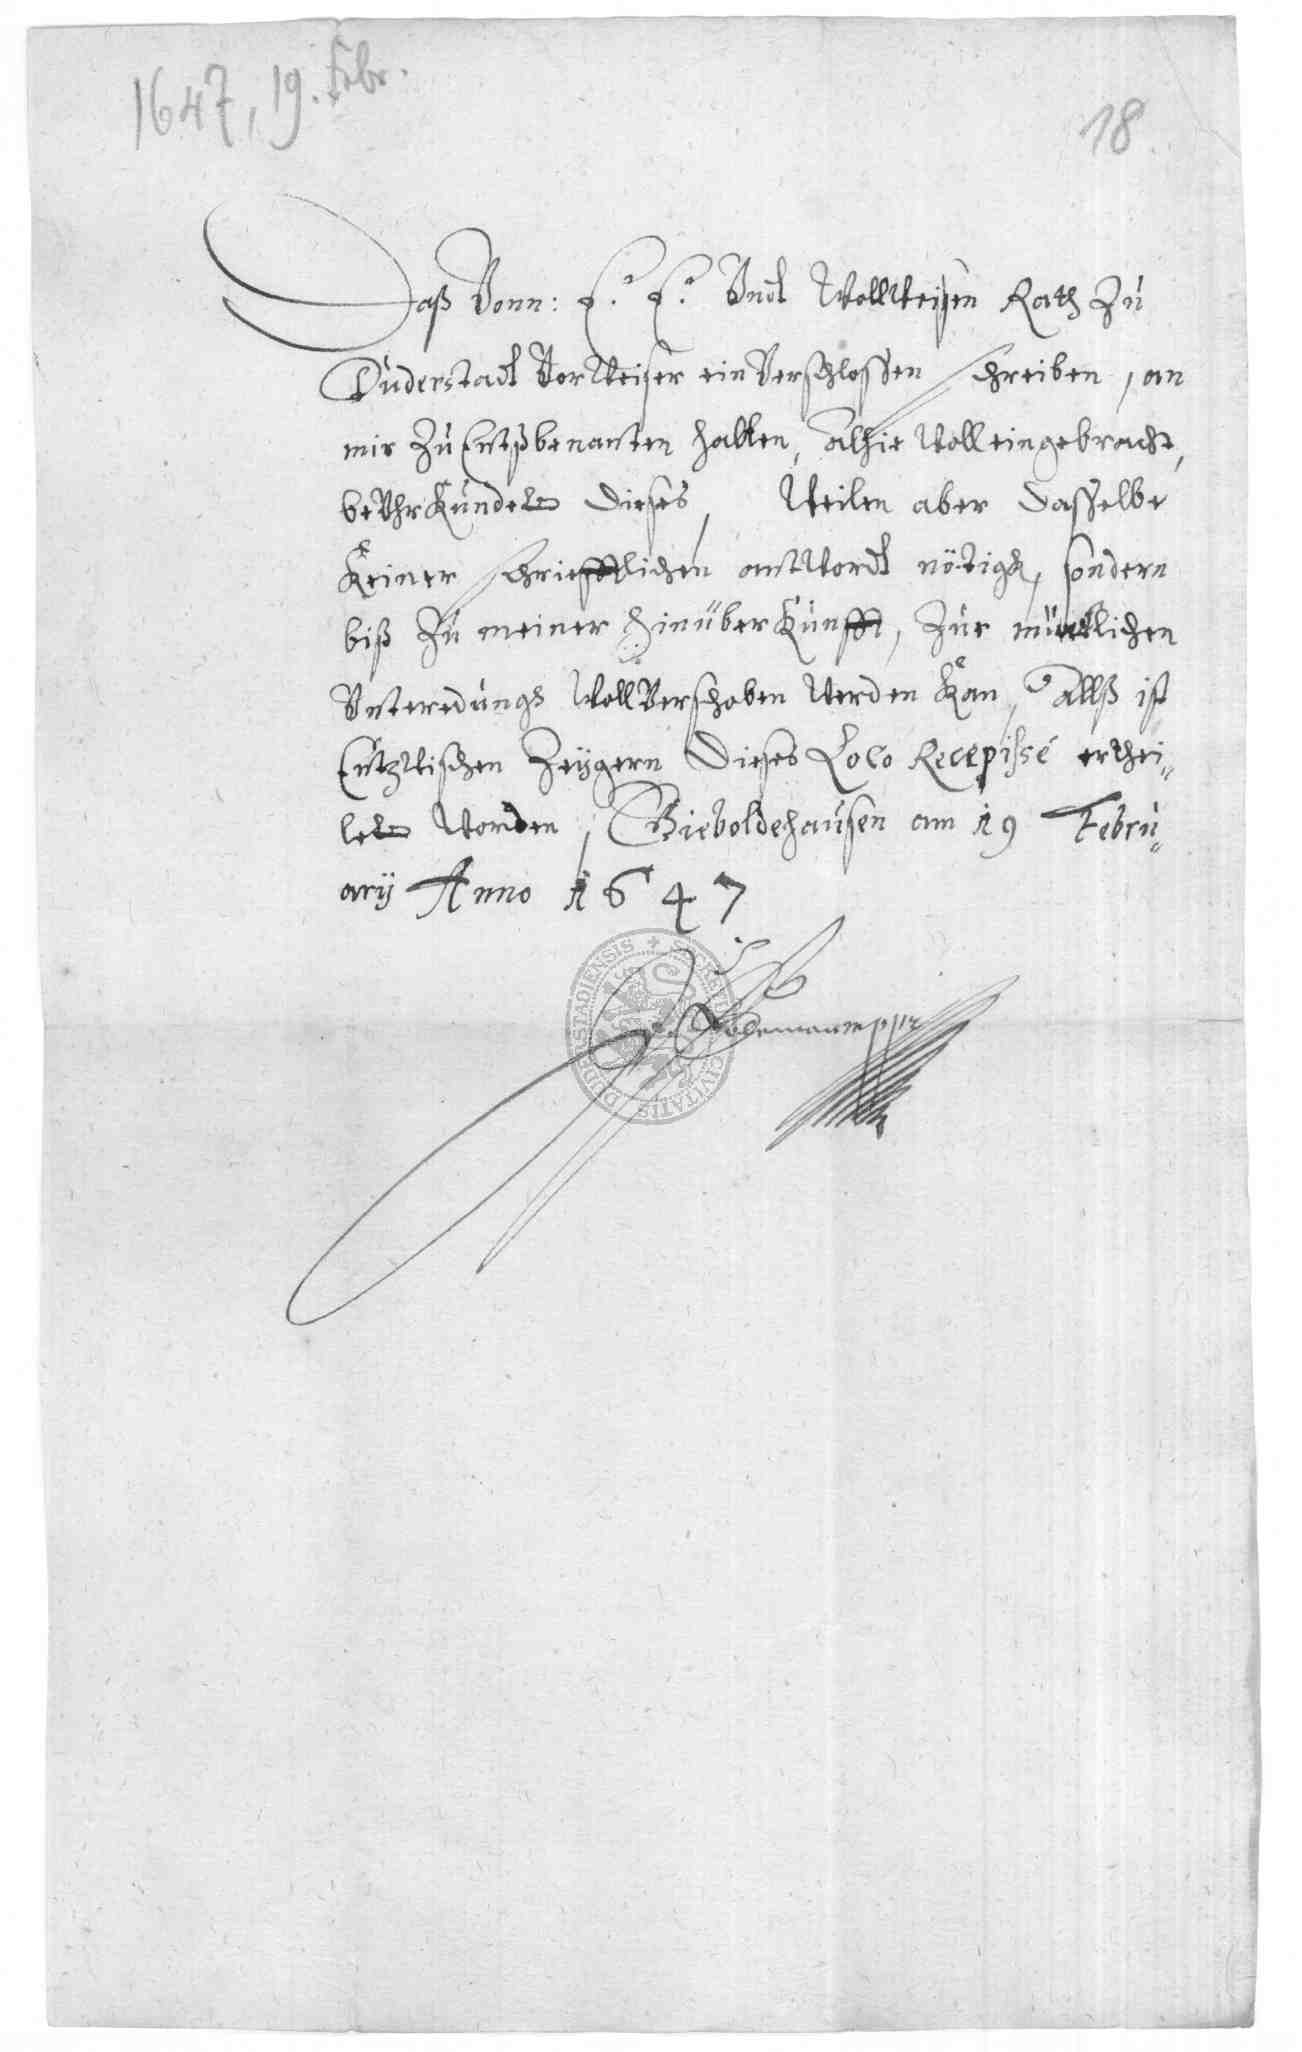 1647, 19. Febr.
18.
Daß Vonn: E. E. Vndt Wollweisen Rath Zu
Duderstadt Vorweiser ein Verschlossen schreiben, an
mir Zu Entßbenanten halten, Alhie Woll eingebracht,
beVhrkundet dieses, Weilen aber dasselbe
Keiner schriefftlichen antwordt nötigh, sondern
biß Zu meiner hinüberkunfft, Zur mündtlichen
Vnteredungh Woll Verschoben Werden Kan, Allß ist
Entzwischen Zeygern dieses Loco Recepisse erthei-
let Worden, Gieboldehausen am 19 Febru-
arij Anno 1647
mppr
SECRETUM CIVITATIS DUDERSTADIENSIS